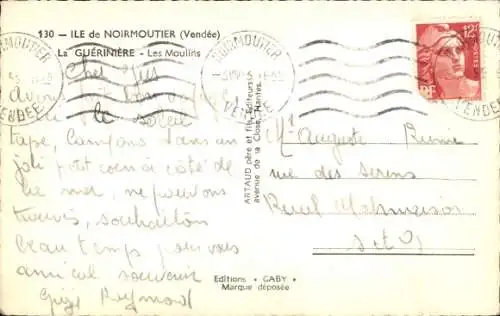 130 - ILE de NOIRMOUTIER (Vendée)
La GUÉRINIÈRE - Les Moulins
NOIRMOUTIER
VENDÉE
NOIRMOUTIER
VENDÉE
12F
POSTES
RF
Cher
Avons
le soleil
tape, Campons dans un
joli petit coin à côté de
la mer, ne pouvons
souhaitons
beau temps pour vous
amical souvenir
Reymond
ARTAUD père et fils, Editeurs
avenue de la Close, Nantes
Mr Auguste
rue des
Rueil Malmaison
S et O
Editions • GABY •
Marque déposée